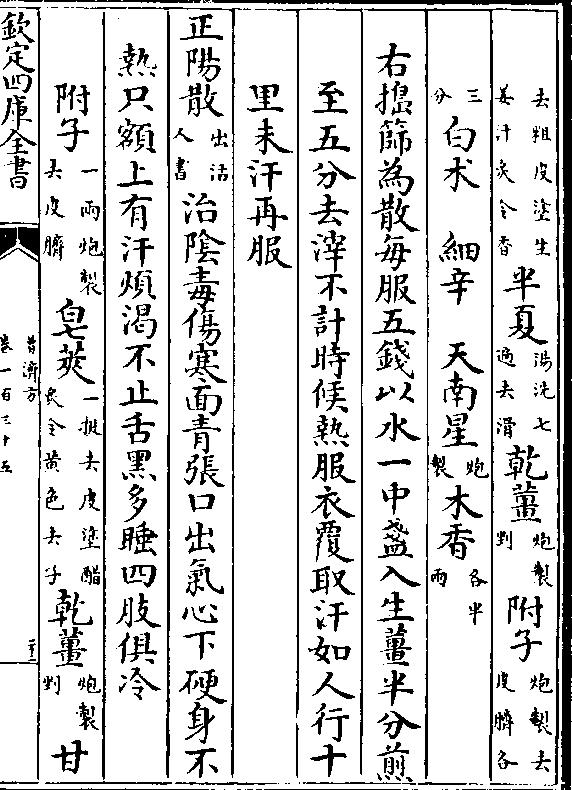 去粗皮塗生姜汁炙令香半夏湯洗七過去滑乾薑炮製剉附子炮製去皮臍各
三分白术 細辛 天南星炮製木香各半兩
右搗篩為散每服五錢以水一中盞入生薑半分煎
至五分去滓不計時候熱服衣覆取汗如人行十
里未汗再服
正陽散出活人書治陰毒傷寒面青張口出氣心下硬身不
熱只額上有汗煩渴不止舌黑多睡四肢俱冷
附子一兩炮製去皮臍皂莢一挺去皮塗醋炙令黃色去子乾薑炮製剉甘
欽定四庫全書
普濟方
卷一百三十五